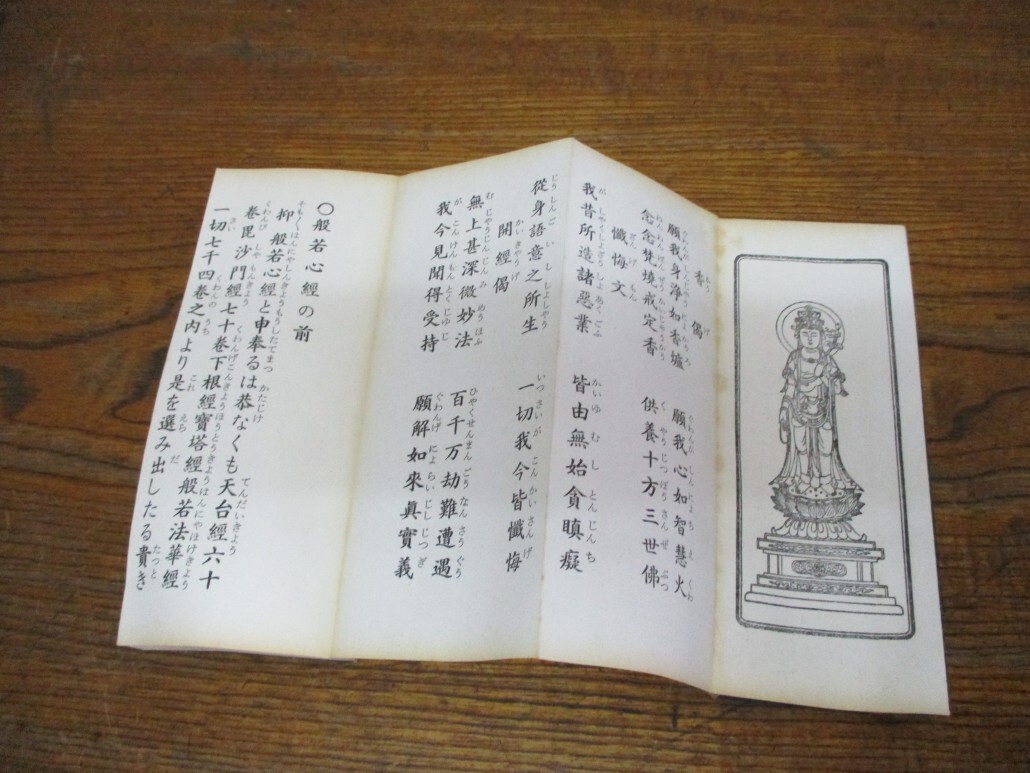 香偈
願我身淨如香爐　願我心如智慧火
念念梵燒戒定香　供養十方三世佛
懺悔文
我昔所造諸惡業　皆由無始貪瞋癡
從身語意之所生　一切我今皆懺悔
開經偈
無上甚深微妙法　百千万劫難遭遇
我今見聞得受持　願解如來眞實義
〇般若心經の前
抑般若心經と申奉るは恭なくも天台經六十
卷毘沙門經七十卷下根經寶塔經般若法華經
一切七千四卷之內より是を選み出したる貴き